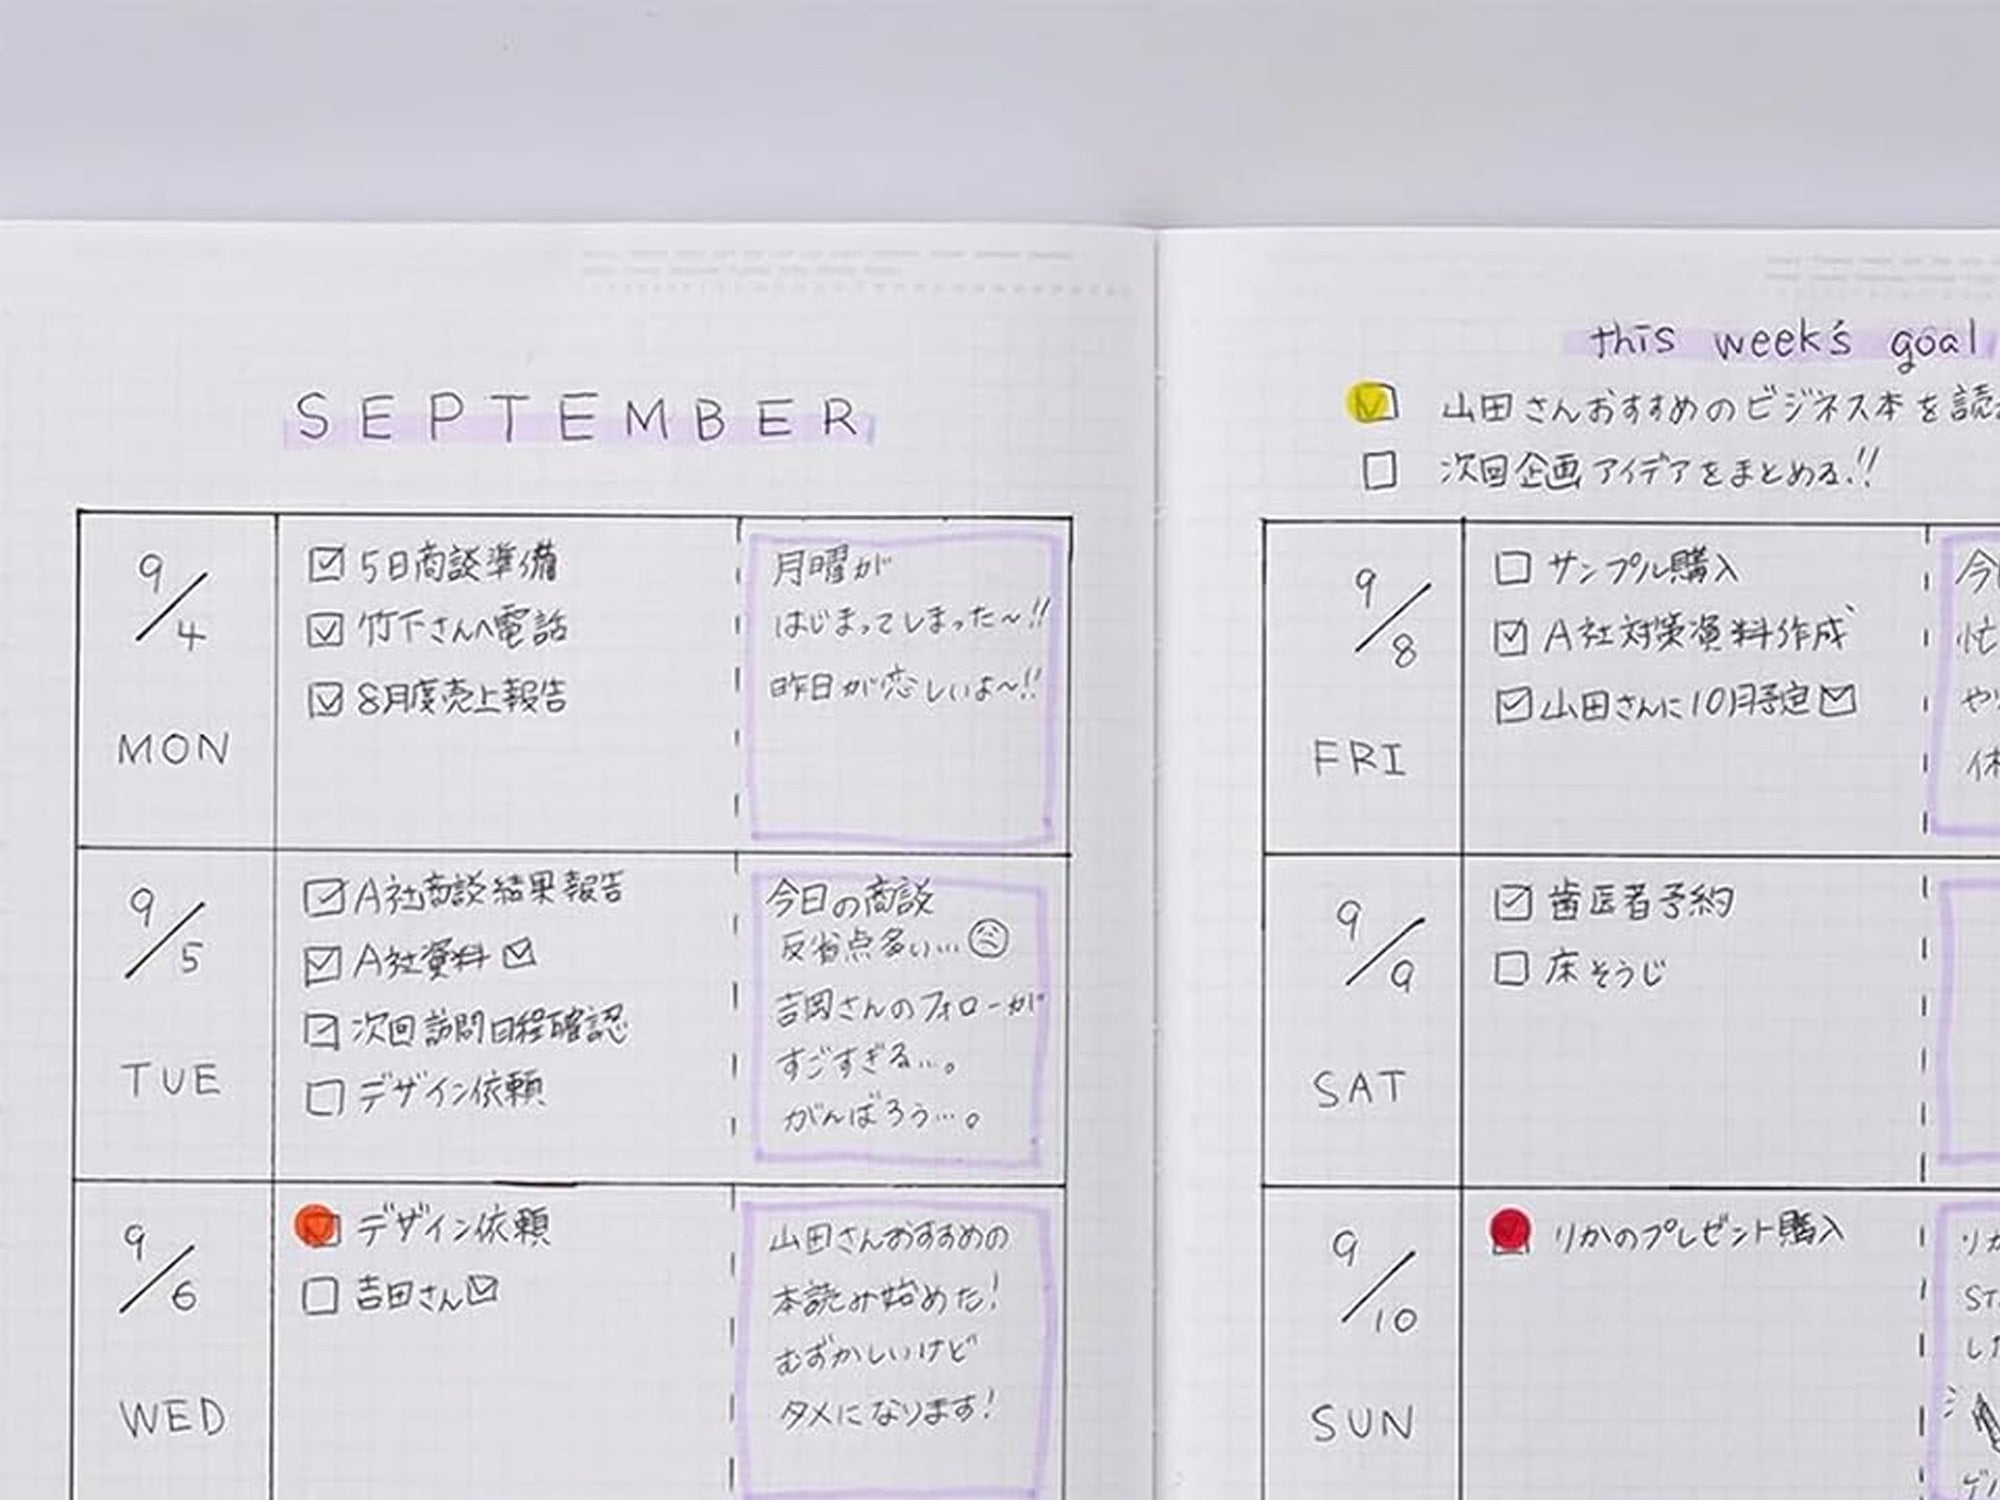 SEPTEMBER
9/4
MON
5日商談準備
竹下さんへ電話
8月度売上報告
月曜が
はじまってしまった〜!!
昨日が恋しいよ〜!!
9/5
TUE
A社商談結果報告
A社資料
次回訪問日程確認
デザイン依頼
今日の商談
反省点多い…
吉岡さんのフォローが
すごすぎる…。
がんばろう…。
9/6
WED
デザイン依頼
吉田さん
山田さんおすすめの
本読み始めた!
むずかしいけど
タメになります!
this week's goal
山田さんおすすめのビジネス本を読
次回企画アイデアをまとめる!!
9/8
FRI
サンプル購入
A社対策資料作成
山田さんに10月予定
今
忙
や
休
9/9
SAT
歯医者予約
床そうじ
9/10
SUN
りかのプレゼント購入
りか
ST
した